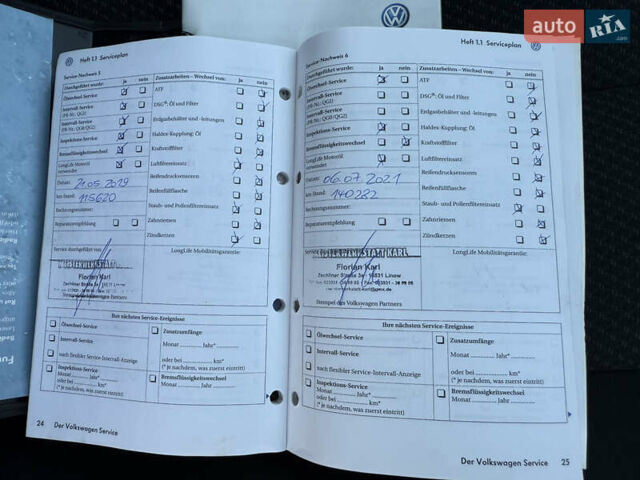 auto RIA .com
Heft 1.1 Serviceplan
Service-Nachweis 5
Durchgeführt wurde: ja nein
Ölwechsel-Service
Intervall-Service
(PR-Nr.: QG1)
Intervall-Service
(PR-Nr.: QG0/QG2)
Inspektions-Service
Bremsflüssigkeitswechsel
LongLife Motoröl
verwendet
Datum: 21.05.2019
km-Stand: 115620
Rechnungsnummer:
Reparaturempfehlung
Zusatzarbeiten – Wechsel von: ja nein
ATF
DSG®: Öl und Filter
Erdgasbehälter und -leitungen
Haldex-Kupplung: Öl
Kraftstofffilter
Luftfiltereinsatz
Reifendrucksensoren
Reifenfüllflasche
Staub- und Pollenfiltereinsatz
Zahnriemen
Zündkerzen
Service durchgeführt von:
LongLife Mobilitätsgarantie:
Florian Karl
Zechliner Straße 3a
Stempel des Volkswagen Partners
Ihre nächsten Service-Ereignisse
Ölwechsel-Service
Intervall-Service
nach flexibler Service-Intervall-Anzeige
Inspektions-Service
Monat Jahr*
oder bei km*
(* je nachdem, was zuerst eintritt)
Zusatzumfänge
Monat Jahr*
oder bei km*
(* je nachdem, was zuerst eintritt)
Bremsflüssigkeitswechsel
Monat Jahr
24 Der Volkswagen Service
Heft 1.1 Serviceplan
Service-Nachweis 6
Durchgeführt wurde: ja nein
Ölwechsel-Service
Intervall-Service
(PR-Nr.: QG1)
Intervall-Service
(PR-Nr.: QG0/QG2)
Inspektions-Service
Bremsflüssigkeitswechsel
LongLife Motoröl
verwendet
Datum: 06.07.2021
km-Stand: 140282
Rechnungsnummer:
Reparaturempfehlung
Zusatzarbeiten – Wechsel von: ja nein
ATF
DSG®: Öl und Filter
Erdgasbehälter und -leitungen
Haldex-Kupplung: Öl
Kraftstofffilter
Luftfiltereinsatz
Reifendrucksensoren
Reifenfüllflasche
Staub- und Pollenfiltereinsatz
Zahnriemen
Zündkerzen
LongLife Mobilitätsgarantie:
Florian Karl
Zechliner Straße 3a · 16831 Linow
Stempel des Volkswagen Partners
Ihre nächsten Service-Ereignisse
Ölwechsel-Service
Intervall-Service
nach flexibler Service-Intervall-Anzeige
Inspektions-Service
Monat Jahr*
oder bei km*
(* je nachdem, was zuerst eintritt)
Zusatzumfänge
Monat Jahr*
oder bei km*
(* je nachdem, was zuerst eintritt)
Bremsflüssigkeitswechsel
Monat Jahr
Der Volkswagen Service 25